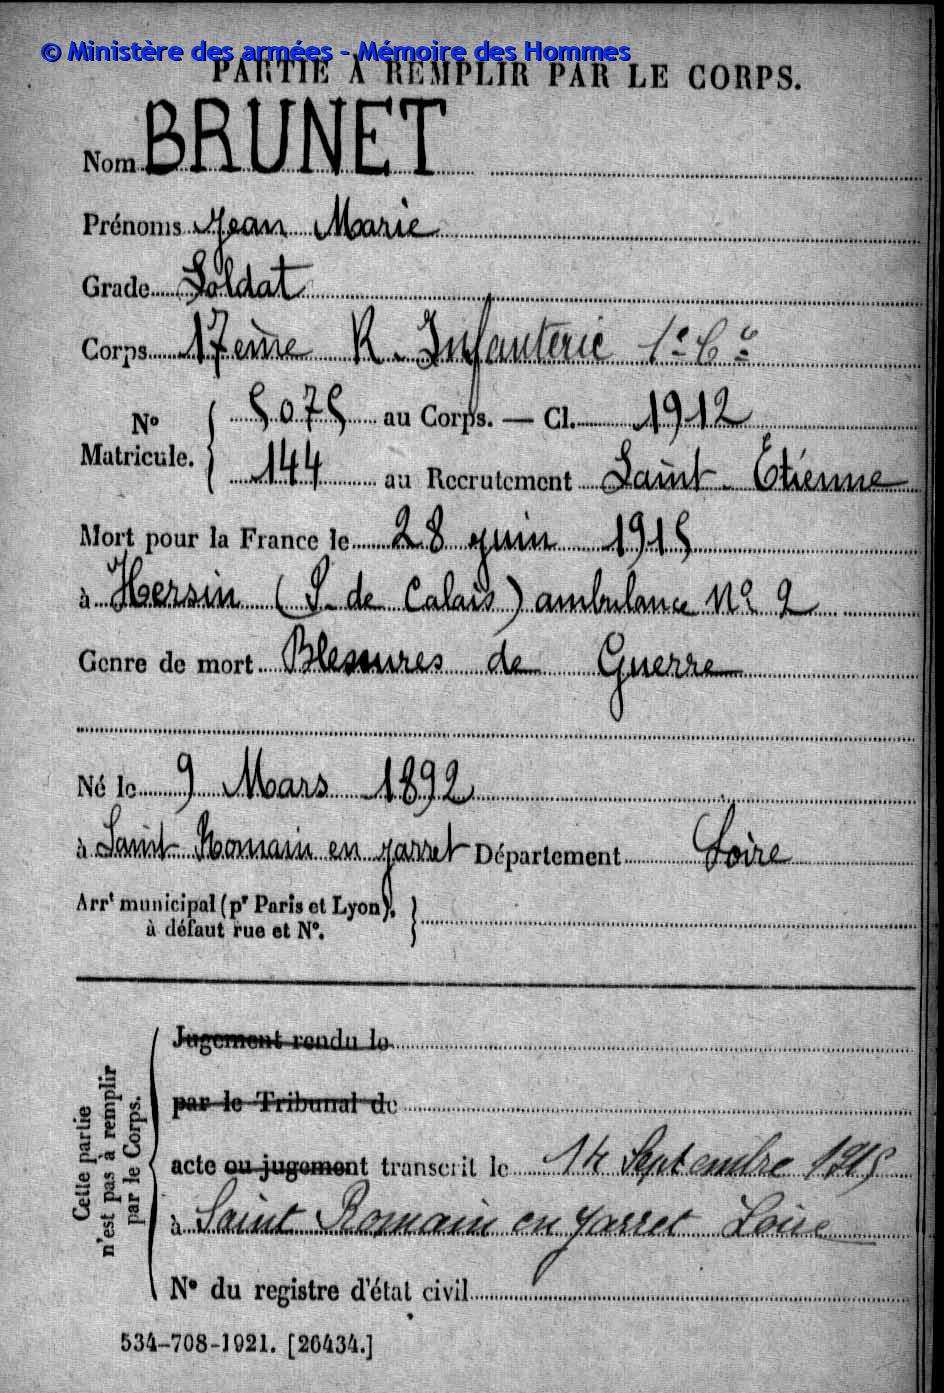 © Ministère des armées - Mémoire des Hommes
PARTIE A REMPLIR PAR LE CORPS.
Nom BRUNET
Prénoms Jean Marie
Grade Soldat
Corps 17ème R. Infanterie 1e Cie
No Matricule. { 5075 au Corps. — Cl. 1912
144 au Recrutement Saint-Etienne
Mort pour la France le 28 juin 1915
à Hersin (P. de Calais) ambulance No 2
Genre de mort Blessures de Guerre
Né le 9 Mars 1892
à Saint Romain en jarret Département Loire
Arrt municipal (pr Paris et Lyon),
à défaut rue et No.
Cette partie
n'est pas à remplir
par le Corps.
Jugement rendu le
par le Tribunal de
acte ou jugement transcrit le 14 Septembre 1915
à Saint Romain en jarret Loire
No du registre d'état civil
534-708-1921. [26434.]